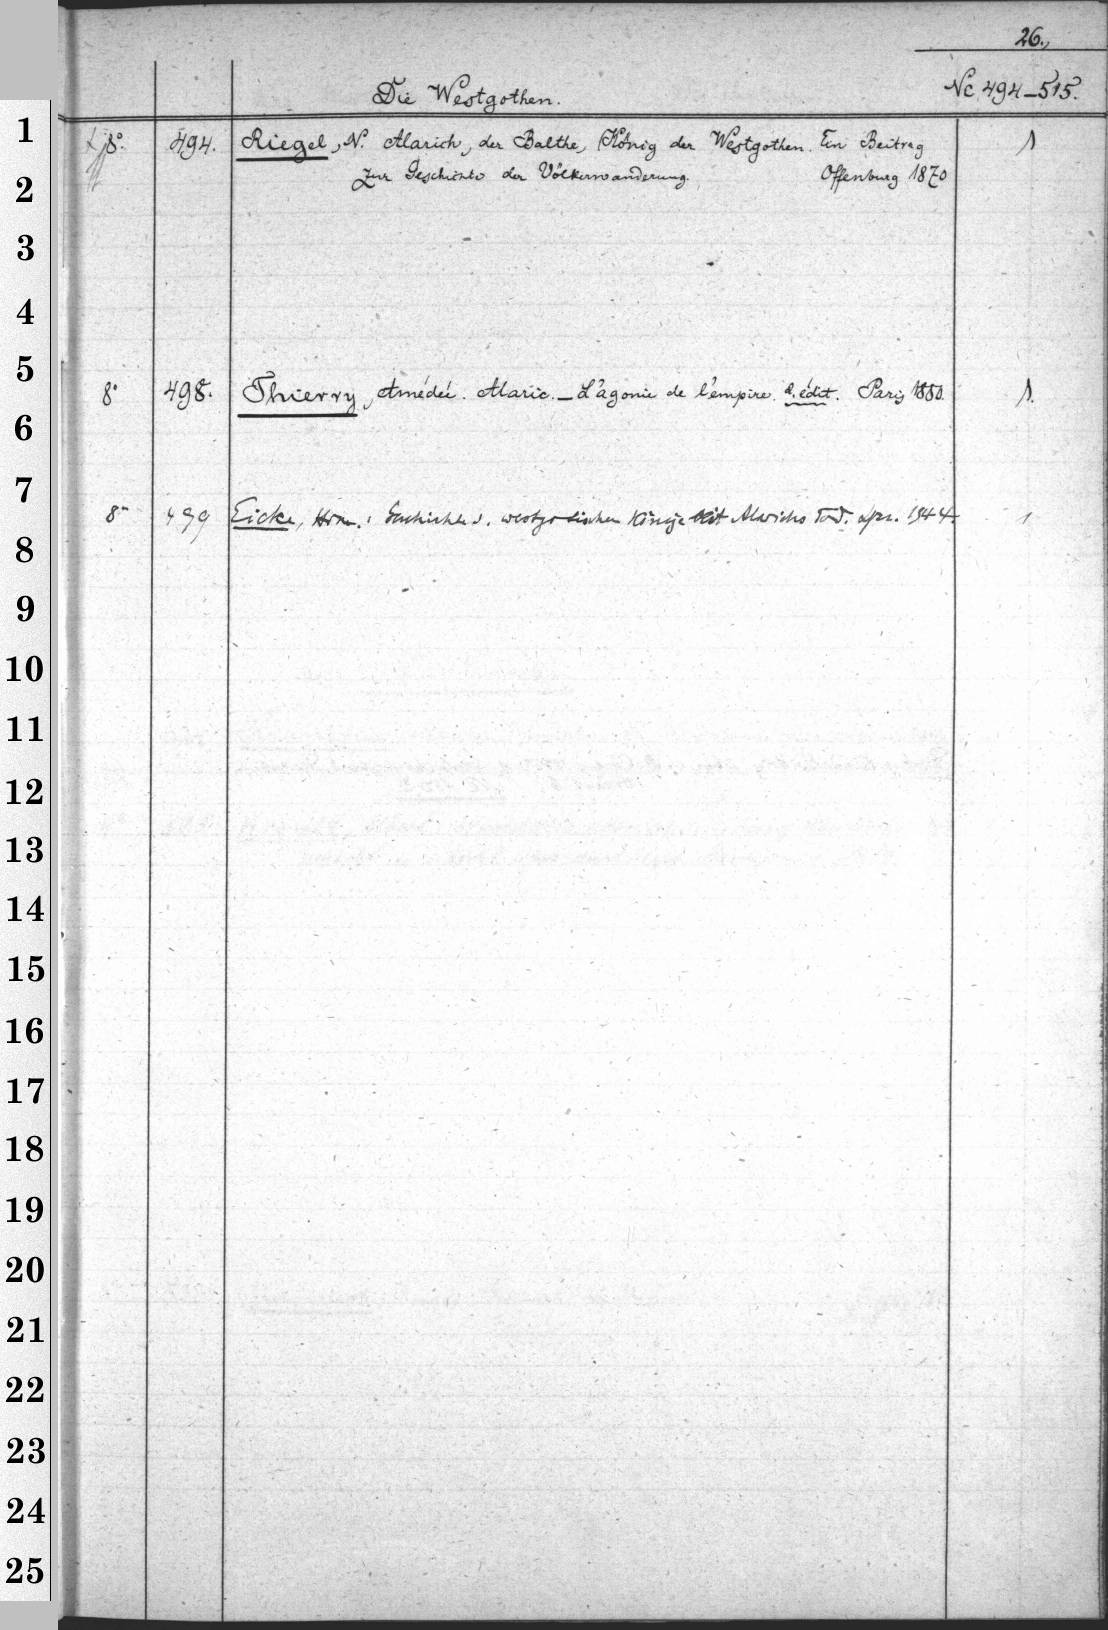 26.,
Die Westgothen. Nc 494-515.
1
8° 494. Riegel, N. Alarich, der Balthe, König der Westgothen. Ein Beitrag 1
2
zur Geschichte der Völkerwanderung. Offenburg 1870
3
4
5
8° 498. Thierry, Amédéé. Alaric. — L'agonie de l'empire. 2. édit. Paris 1880. 1.
6
7
8° 499 Eicke, Hrm.: Geschichte d. westgotischen Könige seit Alarichs Tod. Lpz. 1944. 1
8
9
10
11
12
13
14
15
16
17
18
19
20
21
22
23
24
25